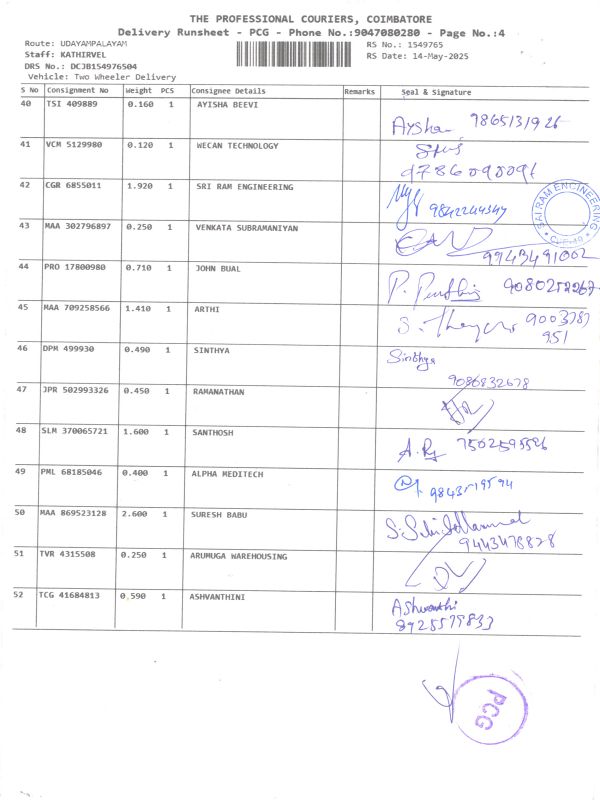 THE PROFESSIONAL COURIERS, COIMBATORE
Delivery Runsheet - PCG - Phone No.:9047080280 - Page No.:4
Route: UDAYAMPALAYAM
Staff: KATHIRVEL
DRS No.: DCJB154976504
Vehicle: Two Wheeler Delivery
RS No.: 1549765
RS Date: 14-May-2025
S No Consignment No Weight PCS Consignee Details Remarks Seal & Signature
40 TSI 409889 0.160 1 AYISHA BEEVI
Aysha 9865131926
41 VCM 5129980 0.120 1 WECAN TECHNOLOGY
9786090091
42 CGR 6855011 1.920 1 SRI RAM ENGINEERING
9842244347
SAI RAM ENGINEERING
43 MAA 302796897 0.250 1 VENKATA SUBRAMANIYAN
9943491002
44 PRO 17800980 0.710 1 JOHN BUAL
9080252267
45 MAA 709258566 1.410 1 ARTHI
9003787
951
46 DPM 499930 0.490 1 SINTHYA
Sinthya
9086832678
47 JPR 502993326 0.450 1 RAMANATHAN
48 SLM 370065721 1.600 1 SANTHOSH
7502595526
49 PML 68185046 0.400 1 ALPHA MEDITECH
50 MAA 869523128 2.600 1 SURESH BABU
9443478828
51 TVR 4315508 0.250 1 ARUMUGA WAREHOUSING
52 TCG 41684813 0.590 1 ASHVANTHINI
Ashwanthi
8925579833
PCG